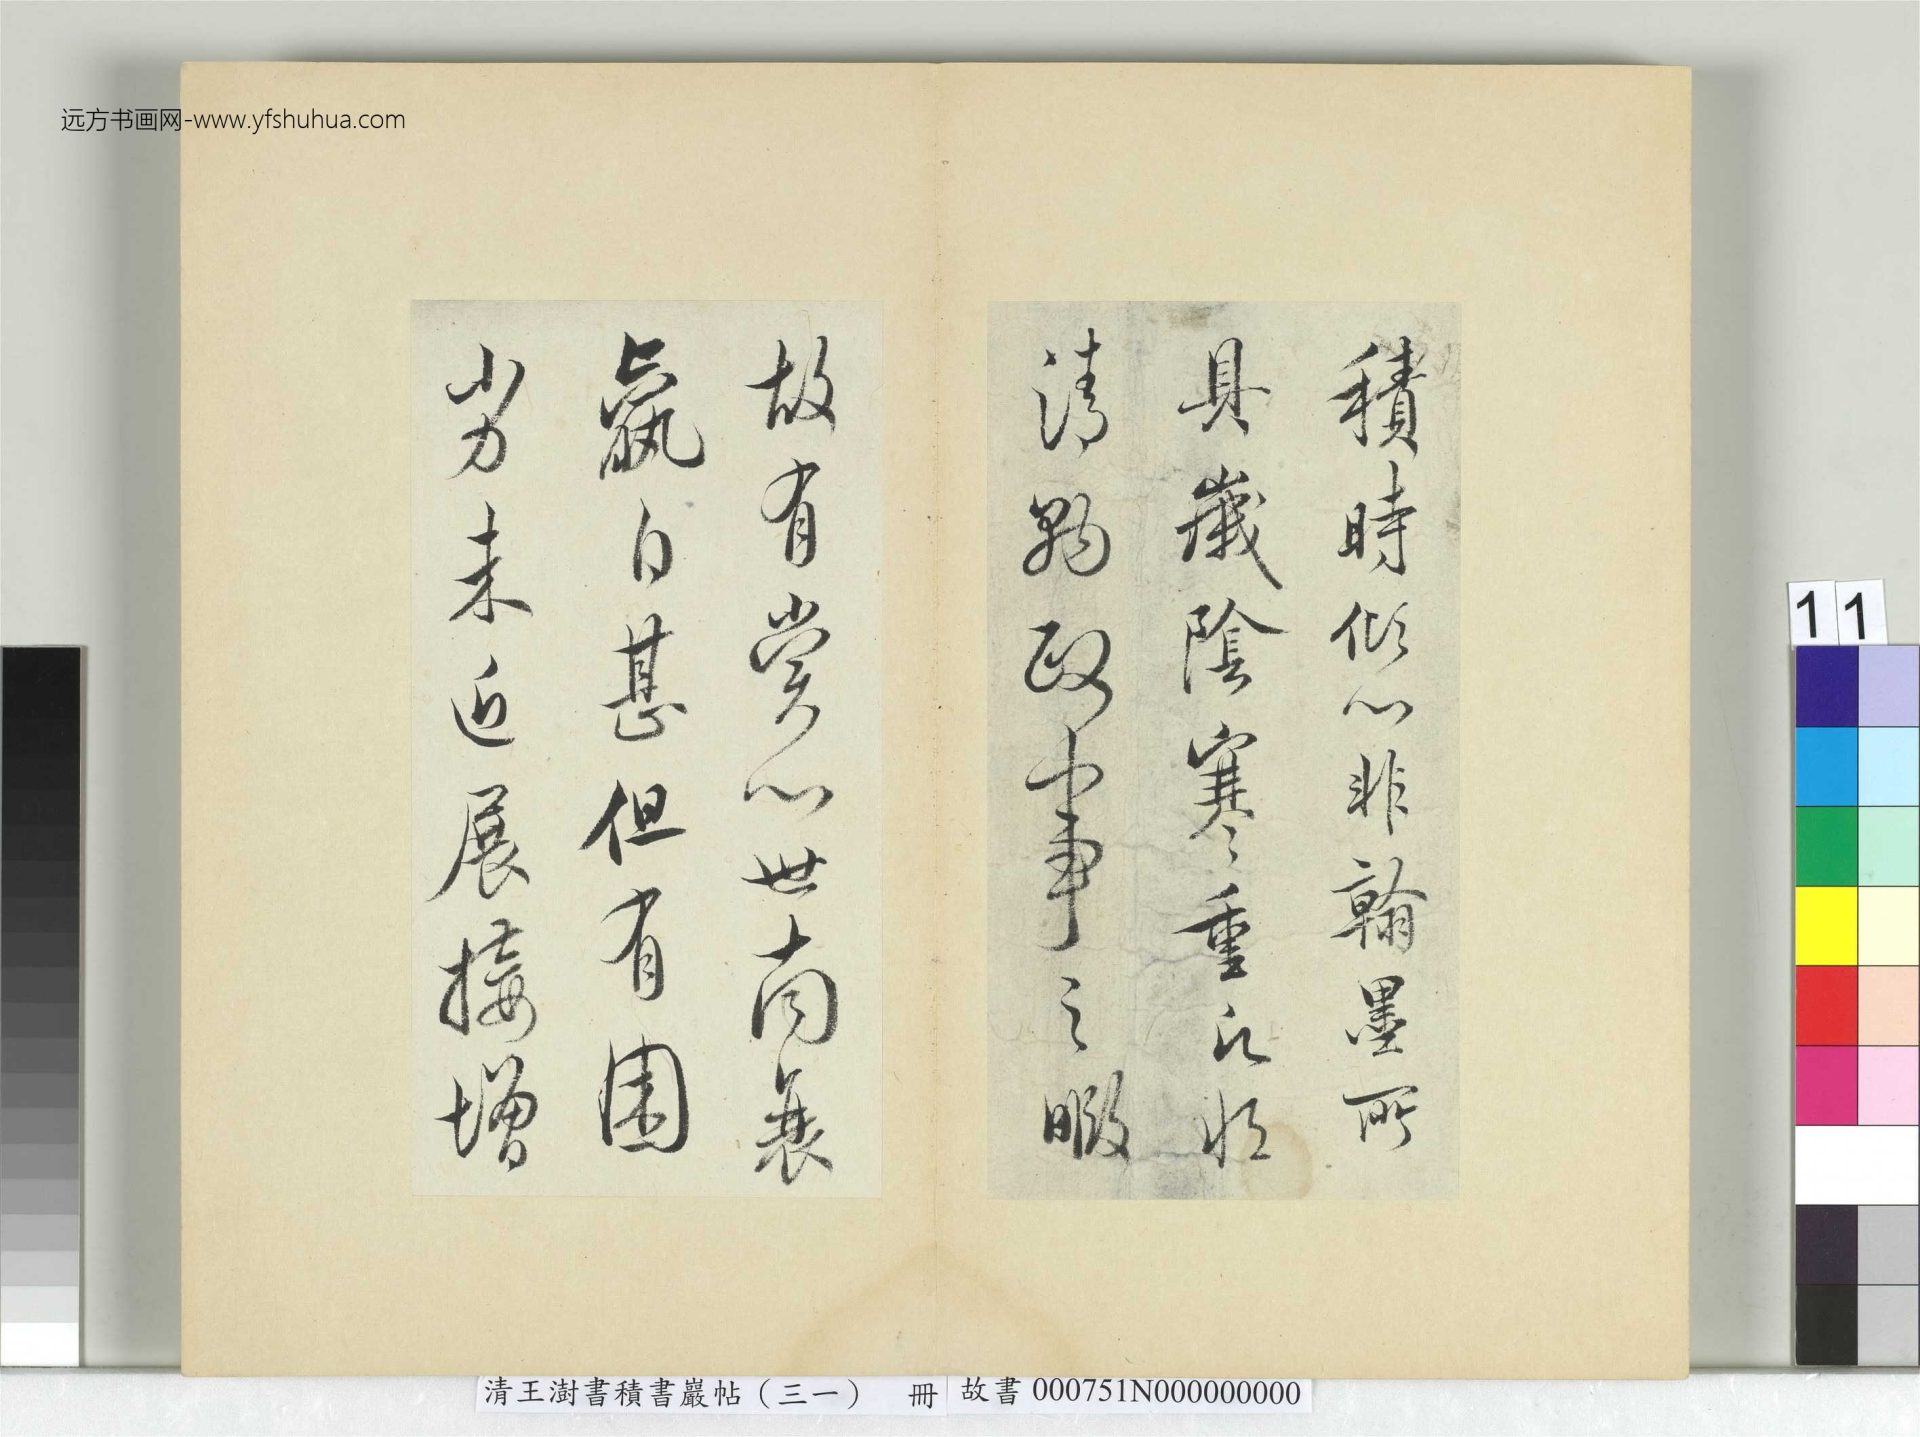 远方书画网-www.yfshuhua.com
積時傾心非翰墨所
具歲陰寒重氏想
清勝政事之暇
故有賞心世南衰
羸日甚但有困
劣未近展接增
11
清王澍書積書巖帖（三一）　冊
故書 000751N000000000